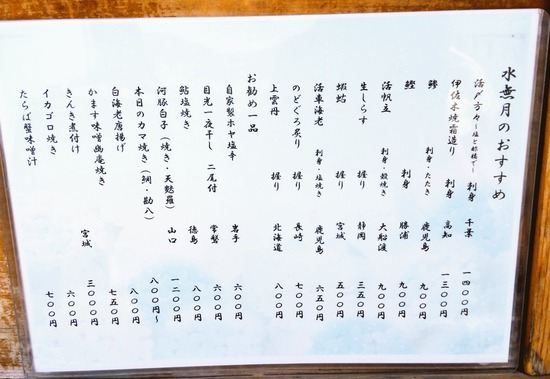 水無月のおすすめ
活〆方々〜塩と郷橘で〜 刺身 千葉 一四〇〇円
伊佐木焼霜造り 刺身 高知 一三〇〇円
鯵 刺身・たたき 鹿児島 九〇〇円
鰹 刺身 勝浦 九〇〇円
活帆立 刺身・殻焼き 大船渡 九〇〇円
生しらす 握り 静岡 三五〇円
蝦蛄 握り 宮城 五〇〇円
活車海老 刺身・塩焼き 鹿児島 六五〇円
のどぐろ炙り 握り 長崎 七〇〇円
上雲丹 握り 北海道 八〇〇円
お勧め一品
自家製ホヤ塩辛 岩手 六〇〇円
目光一夜干し 二尾付 常磐 六〇〇円
鮎塩焼き 徳島 八〇〇円
河豚白子(焼き・天麩羅) 山口 一二〇〇円
本日のカマ焼き(鯛・勘八) 八〇〇円〜
白海老唐揚げ 八〇〇円
かます味噌幽庵焼き 七五〇円
きんき煮付け 宮城 三〇〇〇円
イカゴロ焼き 六〇〇円
たらば蟹味噌汁 七〇〇円